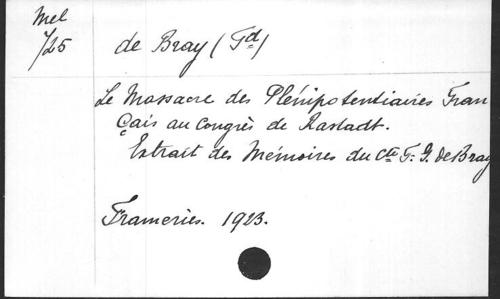 Mel
/25
de Bray (Fd)
Le Massacre des Plénipotentiaires Fran
çais au Congrès de Rastadt.
Extrait des Mémoires du Cte F. G. de Bray
Frameries. 1923.